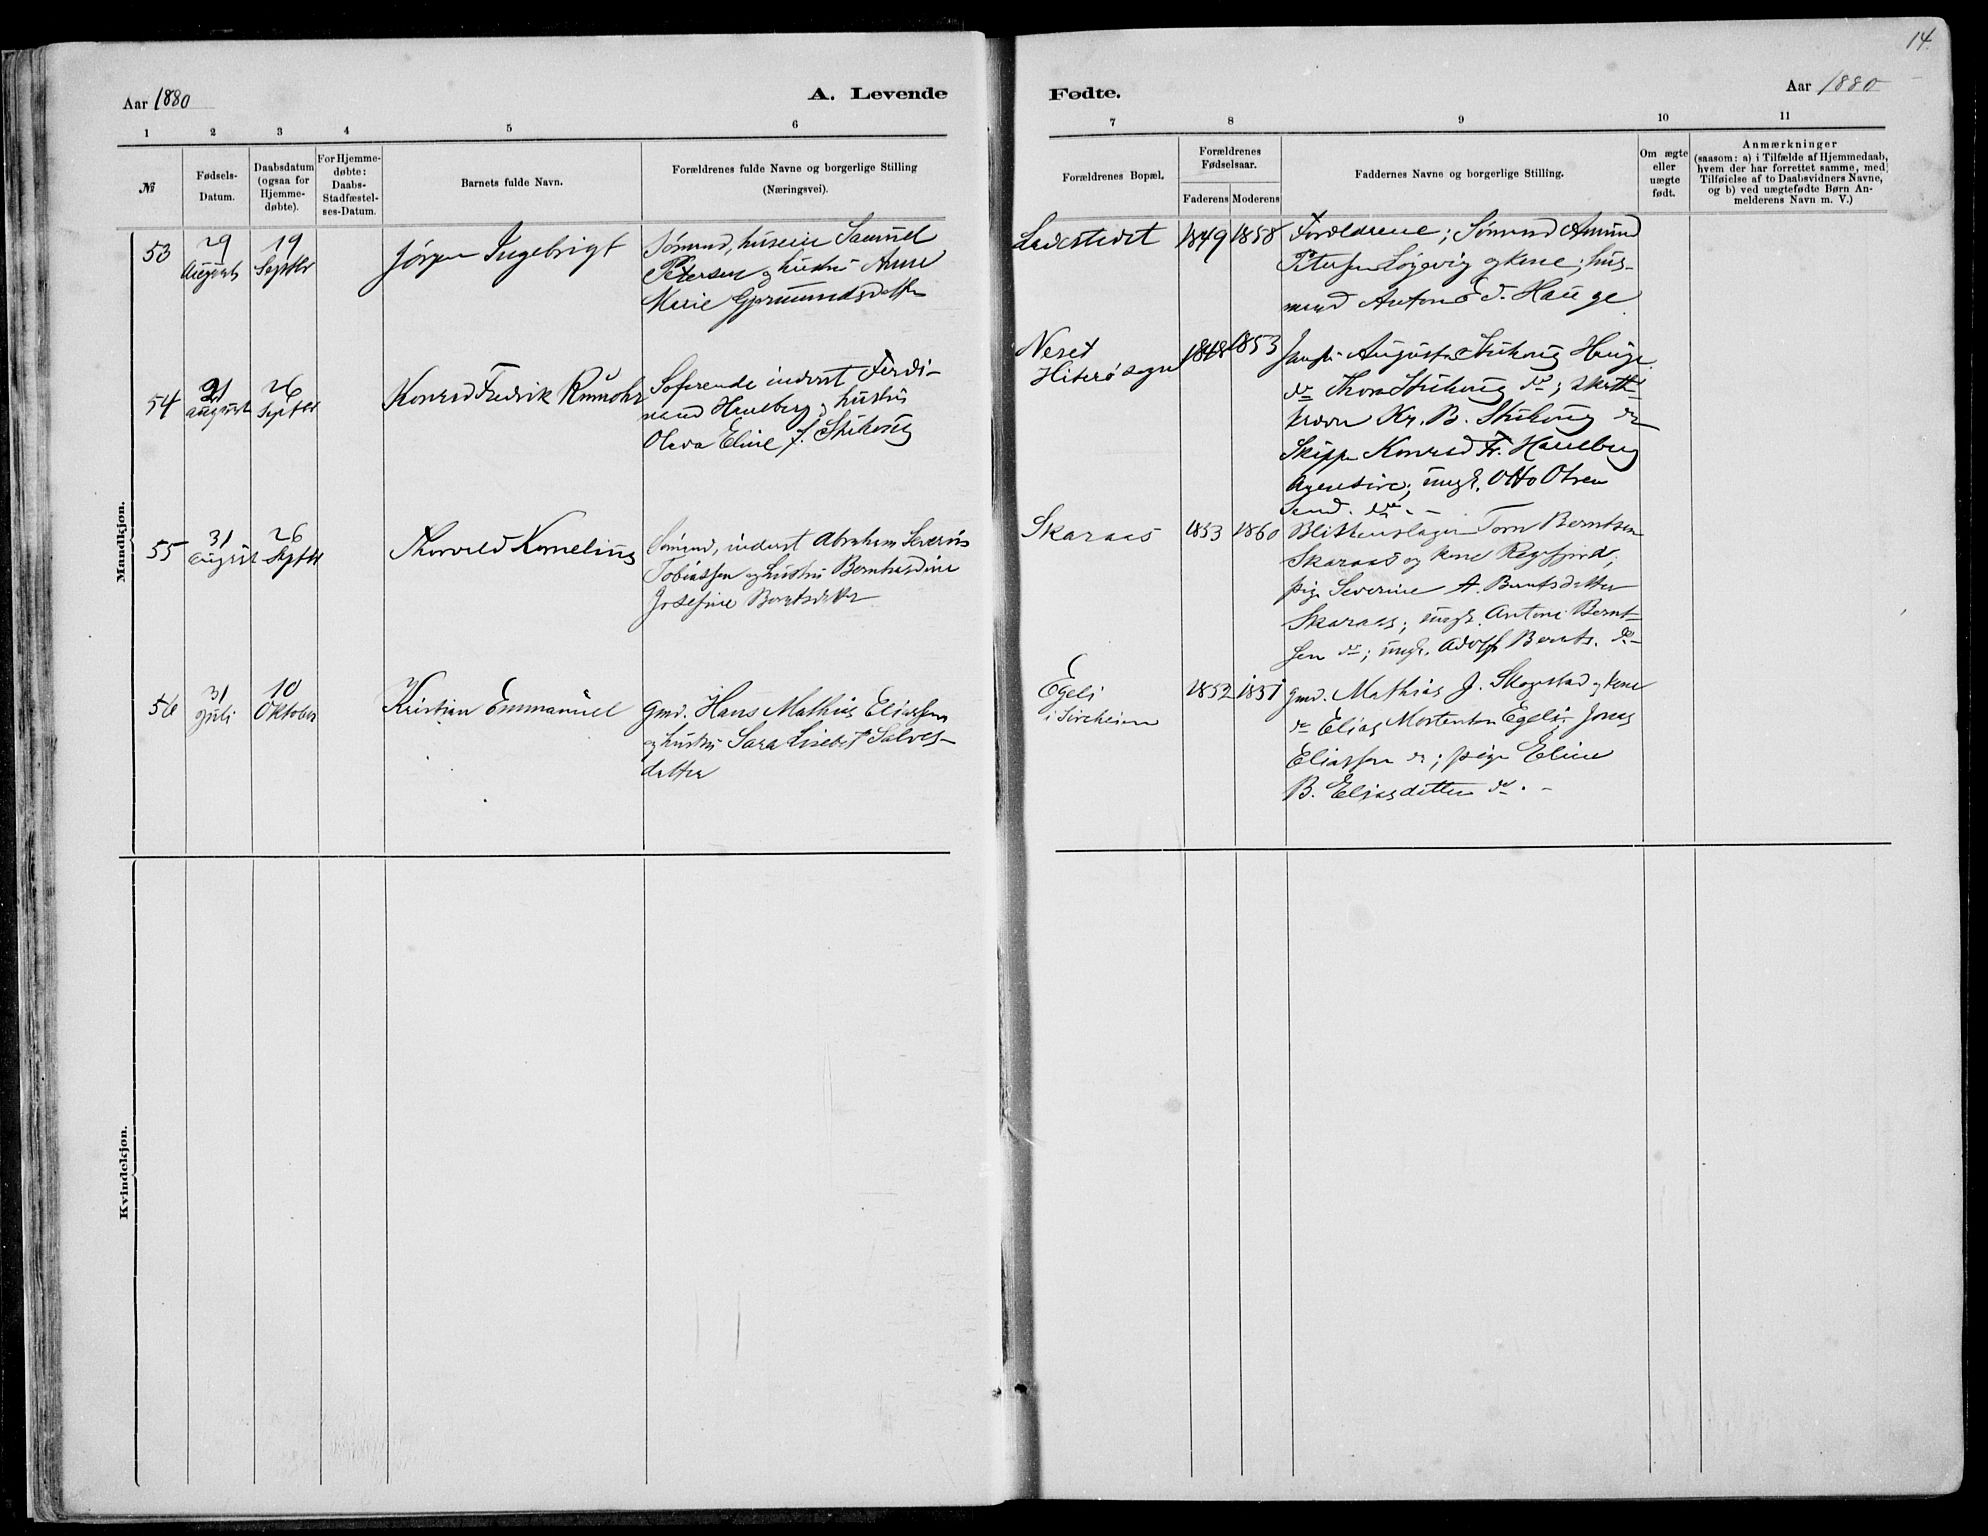 14.
Aar 1880
A. Levende
Fødte.
Aar 1880
1 2 3 4 5 6
7 8 9 10 11
№
Fødsels-
Datum.
Daabsdatum
(ogsaa for
Hjemme-
døbte).
For Hjemme-
døbte:
Daabs-
Stadfæstel-
ses-Datum.
Barnets fulde Navn.
Forældrenes fulde Navne og borgerlige Stilling
(Næringsvei).
Forældrenes Bopæl.
Forældrenes
Fødselsaar.
Faderens Moderens
Faddernes Navne og borgerlige Stilling.
Om ægte
eller
uægte
født.
Anmærkninger
(saasom: a) i Tilfælde af Hjemmedaab,
hvem der har forrettet samme, med
Tilføielse af to Daabsvidners Navne,
og b) ved uægtefødte Børn An-
melderens Navn m. V.)
Mandkjøn.
53
29
August
19
Septbr
Jørgen Ingebrigt
Sømand, huseier Samuel
Petersen og hustru Anne
Marie Gjermundsdatter
Ladestedet
1849 1858
Forældrene; Sømand Amund
Petersen Løgevig og kone; hus-
mand Anton d. Hauge.
54
21
august
26
Septbr
Konrad Fredrik Rumohr
Søfarende inderst Ferdi-
nand Hauberg og hustru
Olava Eline J. Stuhaug
Neset
Hiterø sogn
1848 1853
Augusta Stuhaug Hauge
do Thora Stuhaug do;
Kr. B. Stuhaug do
Skipper Konrad Fr. Hauberg
ungk. Otto Olsen
do. -
55
31
August
26
Septbr
Thorvald Kornelius
Sømand, inderst Abraham Severin
Tobiassen og hustru Bernhardine
Josefine Berntsdatter
Skaraas
1853 1860
Blikkenslager Tom Berntsen
Skaraas og kone Regefjord;
pige Severine A. Berntsdatter
Skaraas; ungk. Antoni Bernt-
sen do; ungk. Adolf Bernts. do-
56
31
Juli
10
Oktober
Kristian Emmanuel
Gmd. Hans Mathias Eliassen
og hustru Sara Lisebet Salves-
datter
Egeli
i Sireheien
1852 1851
Gmd. Mathias J. Skogestad og kone
do Elias Mortensen Egeli; Jonas
Eliassen do; pige Eline
B. Eliasdatter do. -
Kvindekjøn.